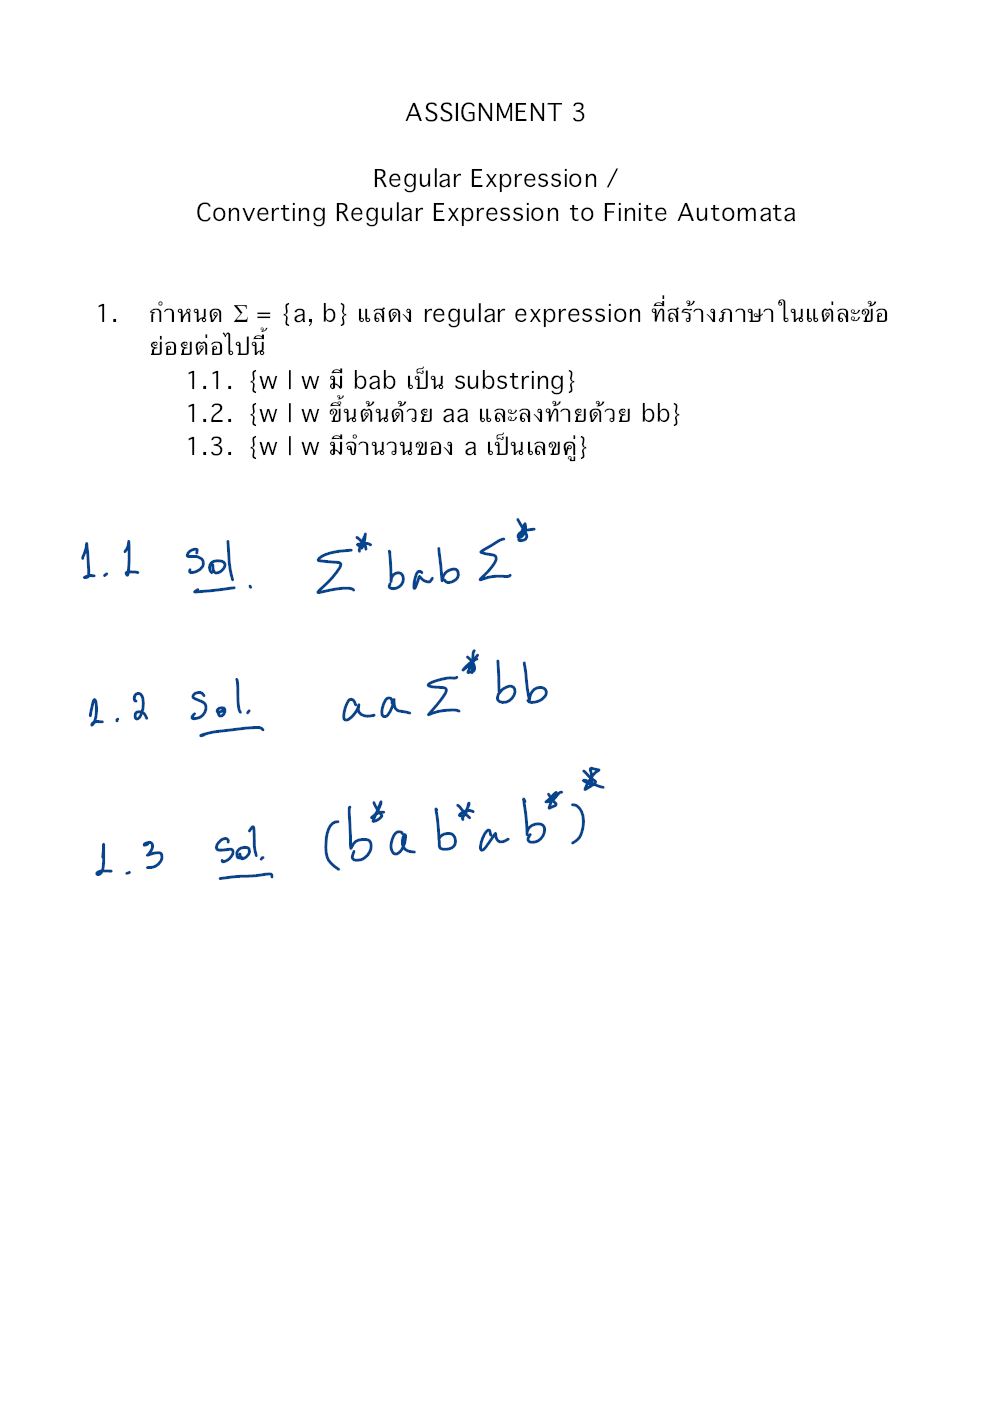 ASSIGNMENT 3
Regular Expression /
Converting Regular Expression to Finite Automata
1. กำหนด Σ = {a, b} แสดง regular expression ที่สร้างภาษาในแต่ละข้อ
ย่อยต่อไปนี้
1.1. {w | w มี bab เป็น substring}
1.2. {w | w ขึ้นต้นด้วย aa และลงท้ายด้วย bb}
1.3. {w | w มีจำนวนของ a เป็นเลขคู่}
1.1 Sol. Σ* bab Σ*
1.2 Sol. aa Σ* bb
1.3 Sol. (b*a b*a b*)*